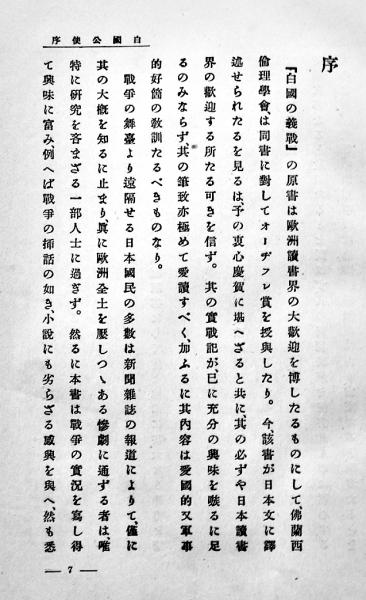 白國公使序
序
『白國の義戰』の原書は歐洲讀書界の大歡迎を博したるものにして、佛蘭西
倫理學會は同書に對してオーヂフレ賞を授與したり。今、該書が日本文に譯
述せられたるを見るは、予の衷心慶賀に堪へざると共に、其の必ずや日本讀書
界の歡迎する所たる可きを信ず。其の實戰記が、已に充分の興味を嗾るに足
るのみならず、其の筆致亦極めて愛讀すべく、加ふるに其内容は愛國的又軍事
的好箇の敎訓たるべきものなり。
戰爭の舞臺より遠隔せる日本國民の多數は新聞雜誌の報道によりて、僅に
其の大槪を知るに止まり、眞に歐洲全土を壓しつゝある慘劇に通ずる者は、唯
特に硏究を吝まざる一部人士に過ぎず。然るに本書は戰爭の實況を寫し得
て興味に富み、例へば戰爭の揷話の如き、小說にも劣らざる感興を與へ、然も悉
— 7 —